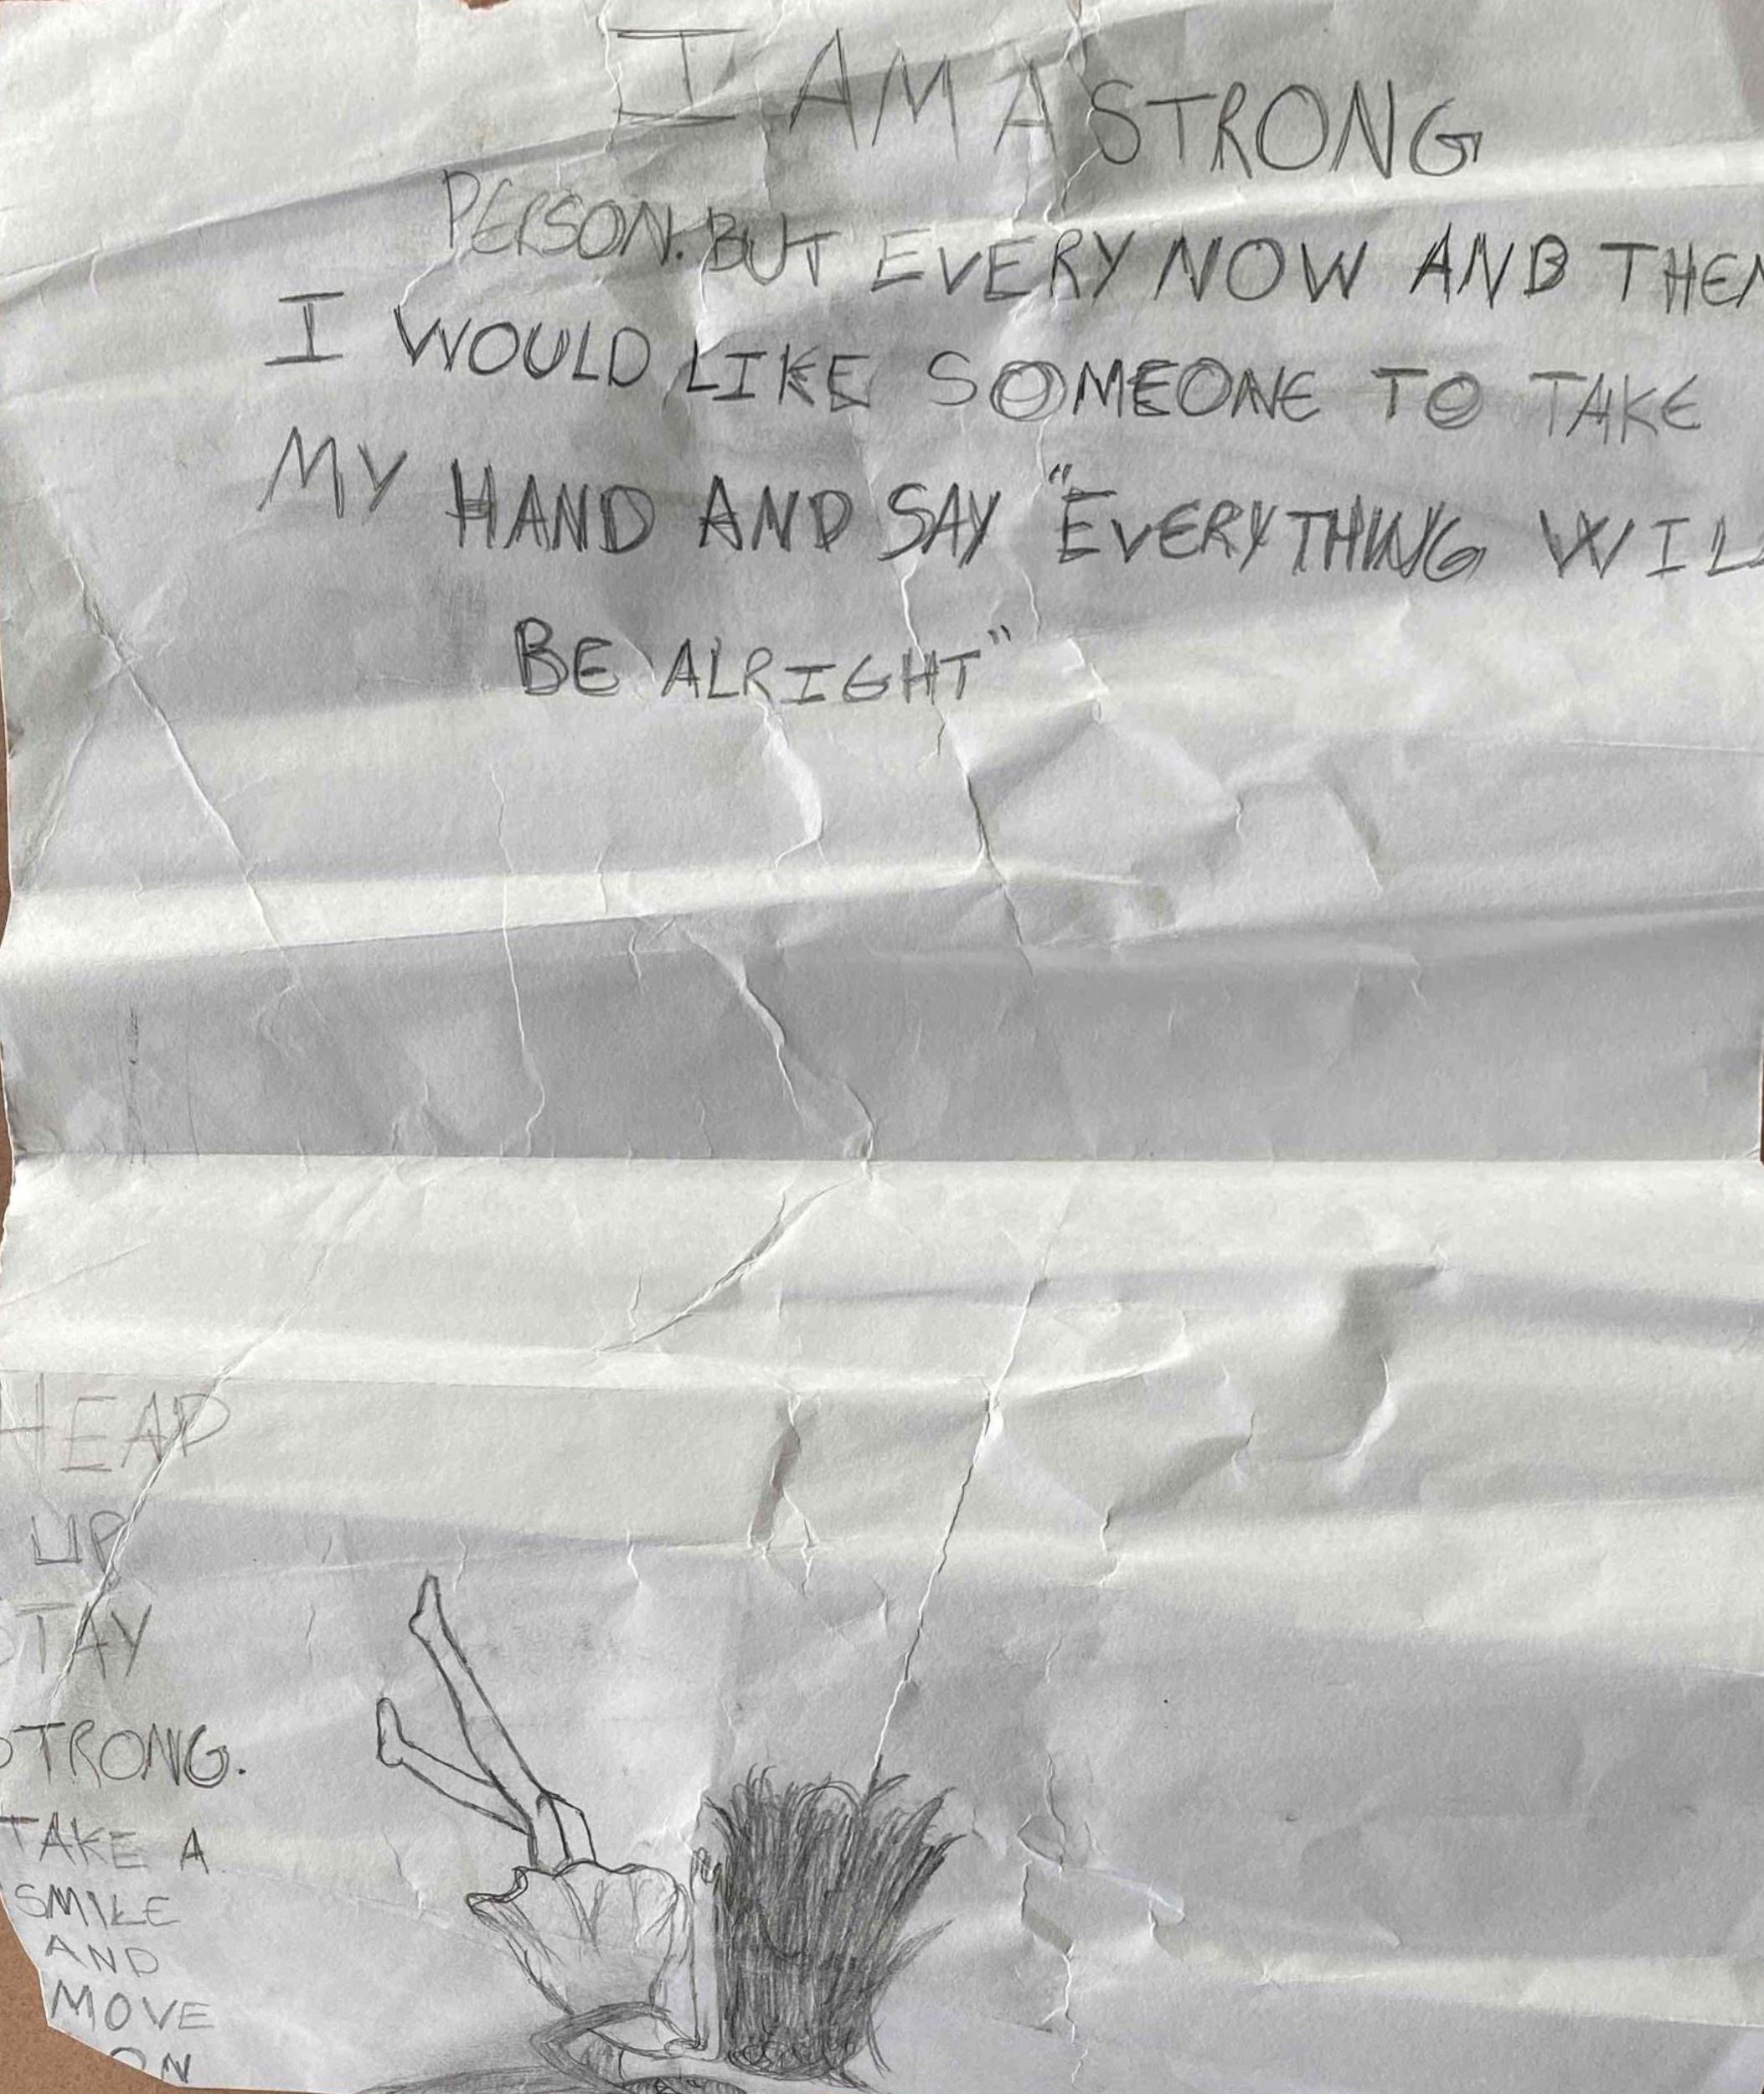 I AM A STRONG
PERSON. BUT EVERY NOW AND THEN
I WOULD LIKE SOMEONE TO TAKE
MY HAND AND SAY "EVERYTHING WIL
BE ALRIGHT"
HEAD
UP
STAY
STRONG.
TAKE A
SMILE
AND
MOVE
ON